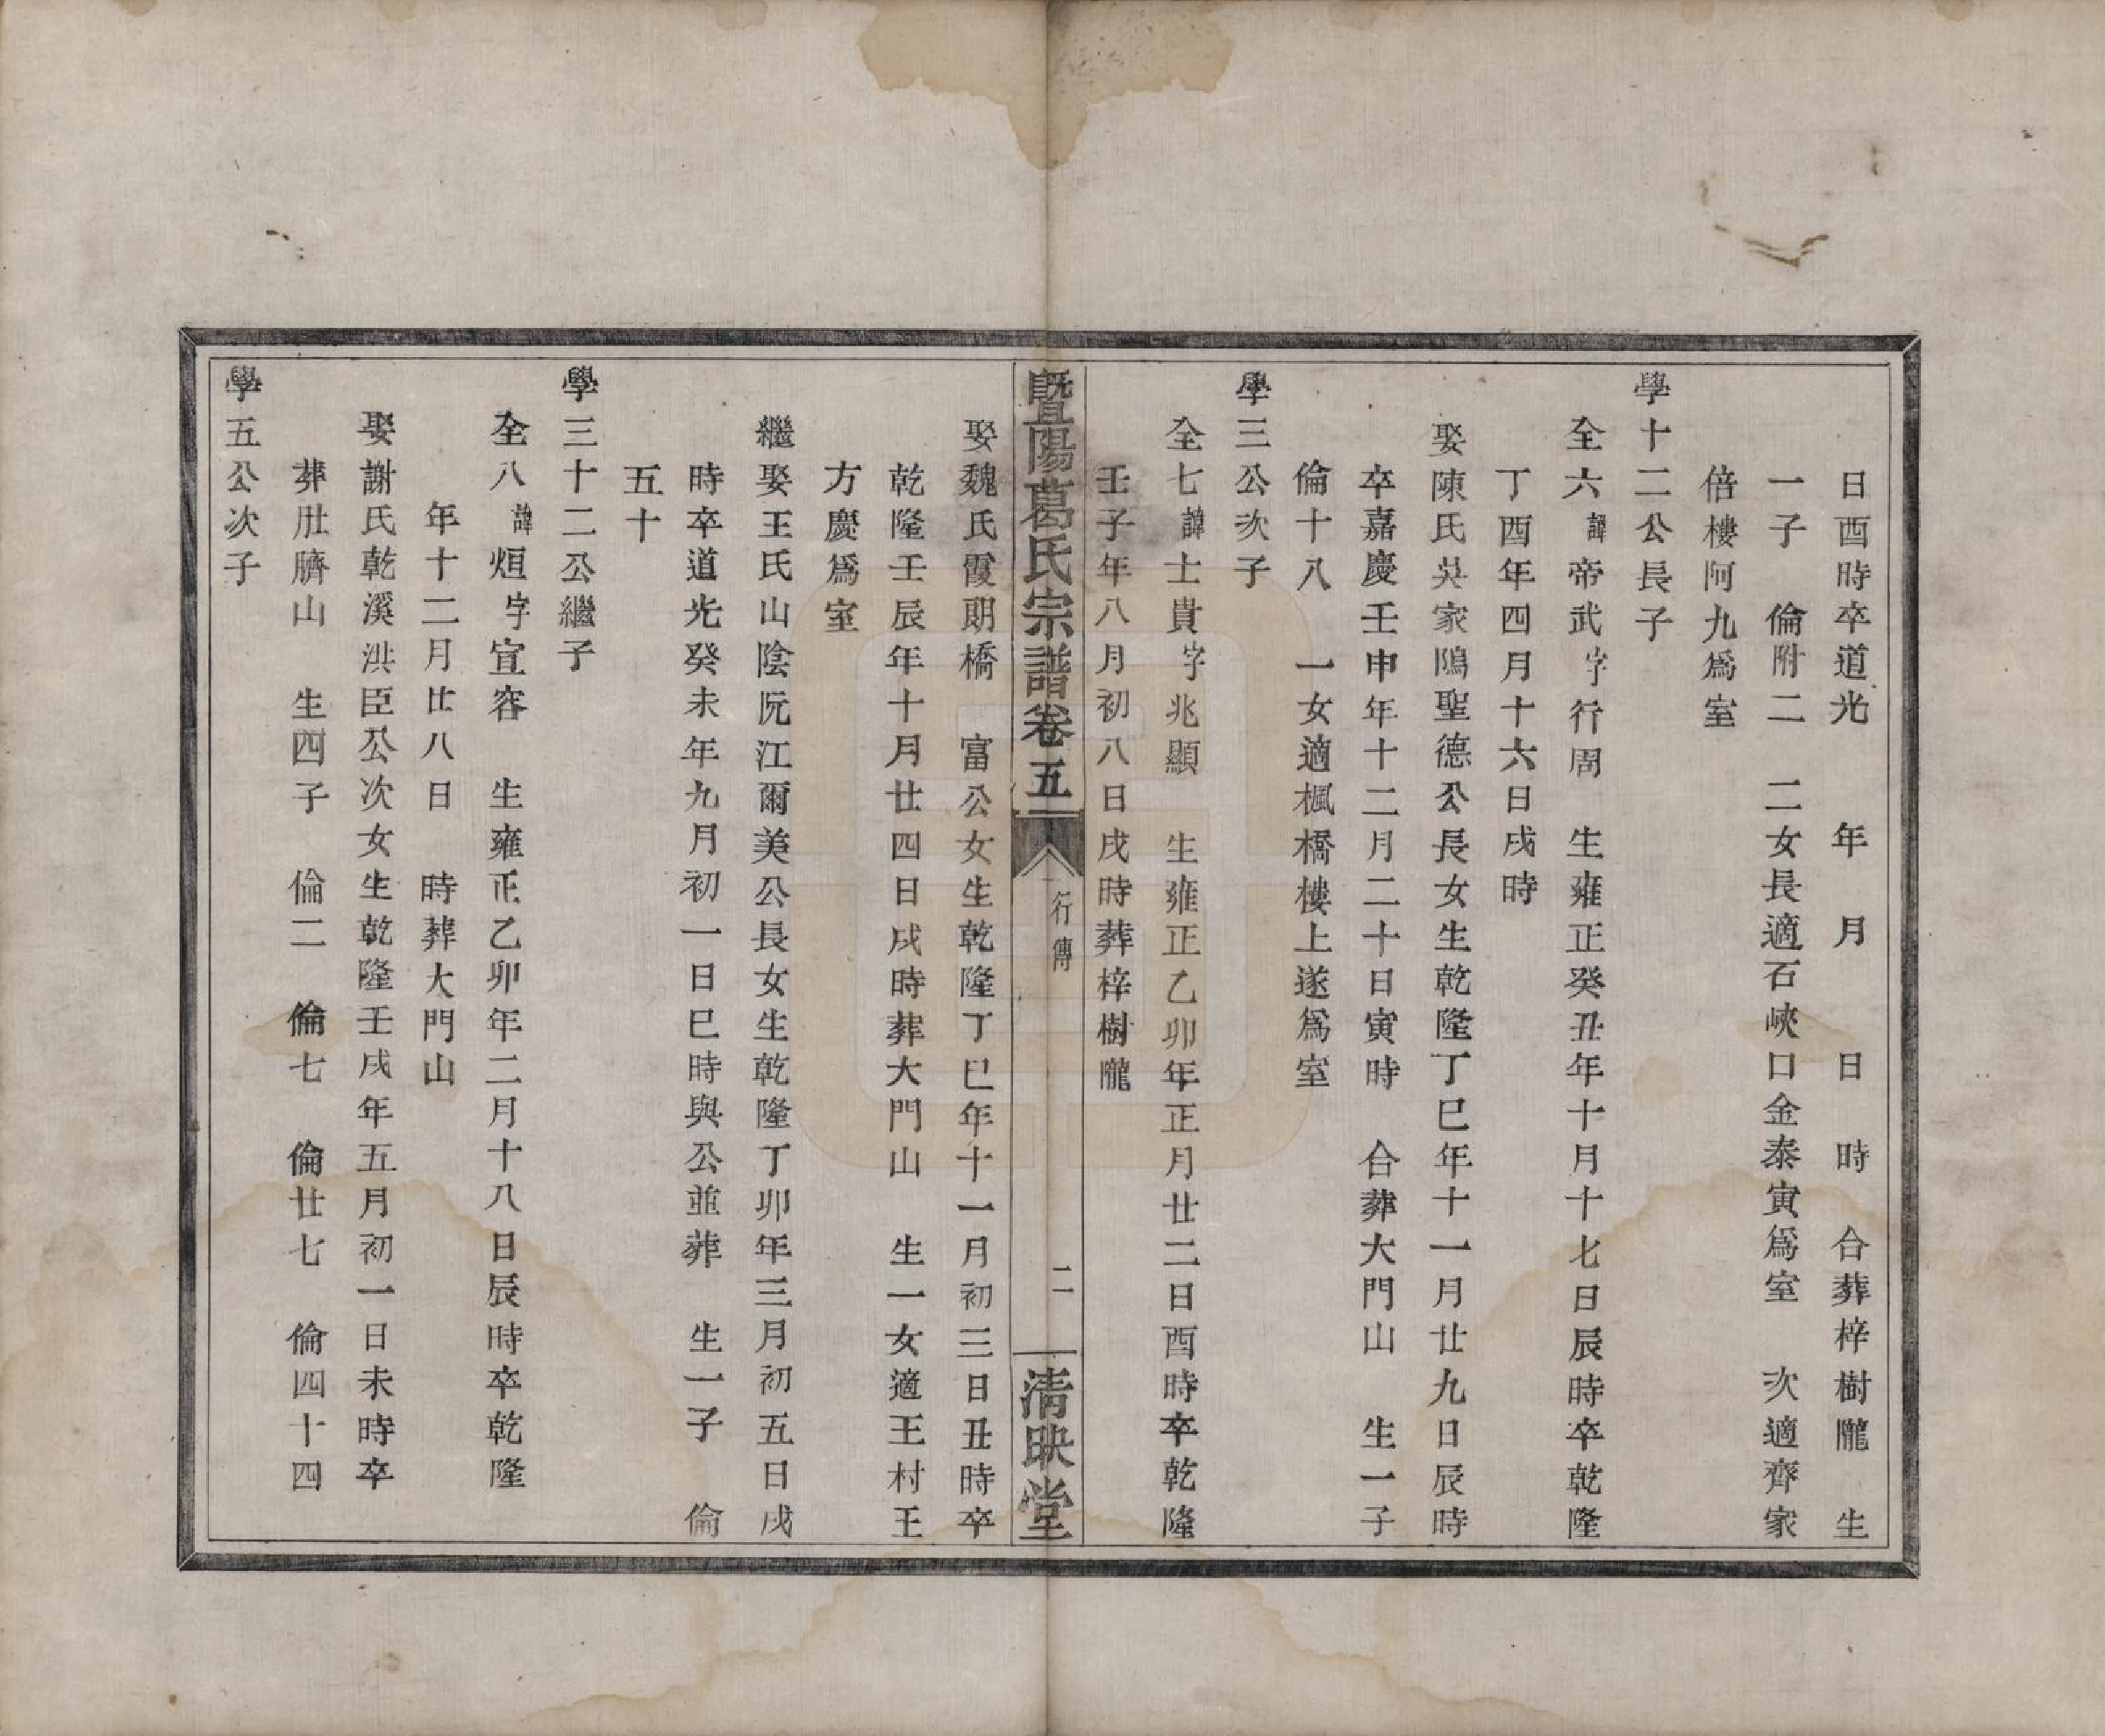 日酉時卒道光　年　月　日　時　合葬梓樹隴　生
一子　倫附二　二女長適石峽口金泰寅爲室　次適齊家
倍樓阿九爲室
學十二公長子
全六諱帝武字行周　生雍正癸丑年十月十七日辰時卒乾隆
丁酉年四月十六日戌時
娶陳氏吳家隝聖德公長女生乾隆丁巳年十一月廿九日辰時
卒嘉慶壬申年十二月二十日寅時　合葬大門山　生一子
倫十八　一女適楓橋樓上遂爲室
學三公次子
全七諱士貴字兆顯　生雍正乙卯年正月廿二日酉時卒乾隆
壬子年八月初八日戌時葬梓樹隴
暨陽葛氏宗譜卷五　行傳　二　清映堂
娶魏氏霞朗橋　富公女生乾隆丁巳年十一月初三日丑時卒
乾隆壬辰年十月廿四日戌時葬大門山　生一女適王村王
方慶爲室
繼娶王氏山陰阮江爾美公長女生乾隆丁卯年三月初五日戌
時卒道光癸未年九月初一日巳時與公並葬　生一子　倫
五十
學三十二公繼子
全八諱烜字宣容　生雍正乙卯年二月十八日辰時卒乾隆
年十二月廿八日　時葬大門山
娶謝氏乾溪洪臣公次女生乾隆壬戌年五月初一日未時卒
葬肚臍山　生四子　倫二　倫七　倫廿七　倫四十四
學五公次子